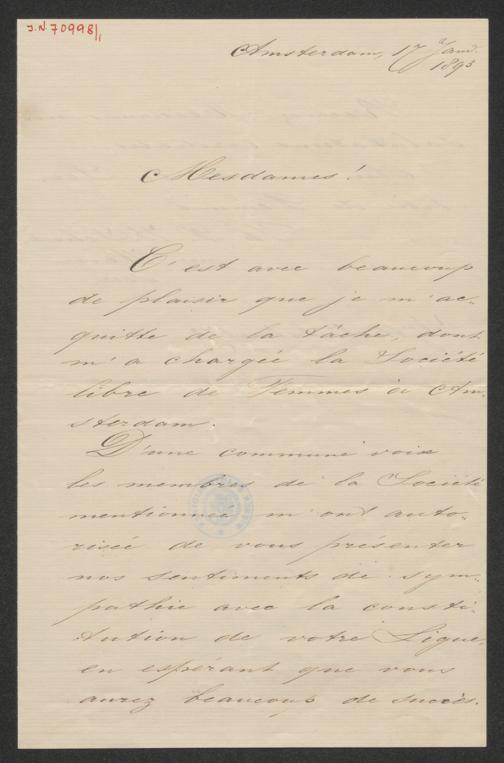 J.N. 70998/1
Amsterdam, 17 Janr.
1893
Mesdames!
C'est avec beaucoup
de plaisir que je m'ac-
quitte de la tâche, dont
m'a chargée la Société
libre de Femmes à Am-
sterdam.
D'une commune voix
les membres de la Société
mentionnée m'ont auto-
risée de vous présenter
nos sentiments de sym-
pathie avec la consti-
tution de votre Ligue,
en espérant que vous
aurez beaucoup de succès.